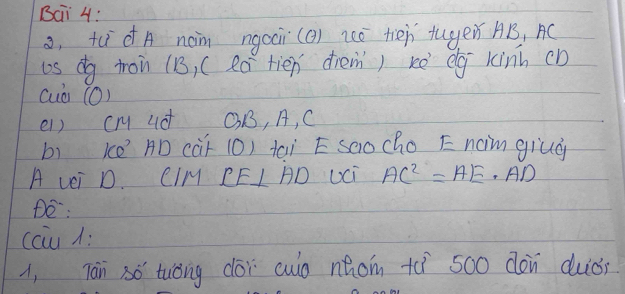 Bài 4:
2, từ đ A nằm ngoài (O) kẻ tiếp tuyến AB, AC
vs đg tròn (B, C là tiếp điểm) kẻ đg kính CD
của (O)
a) CM 4đ O,B, A, C
b) kẻ AD cắt (O) tại E sao cho E nằm giữa
A với D. C/M CE⊥AD và AC² = AE . AD
Đề:
Câu 1:
1, Tần số tương đối của nhóm từ 500 đến dưới